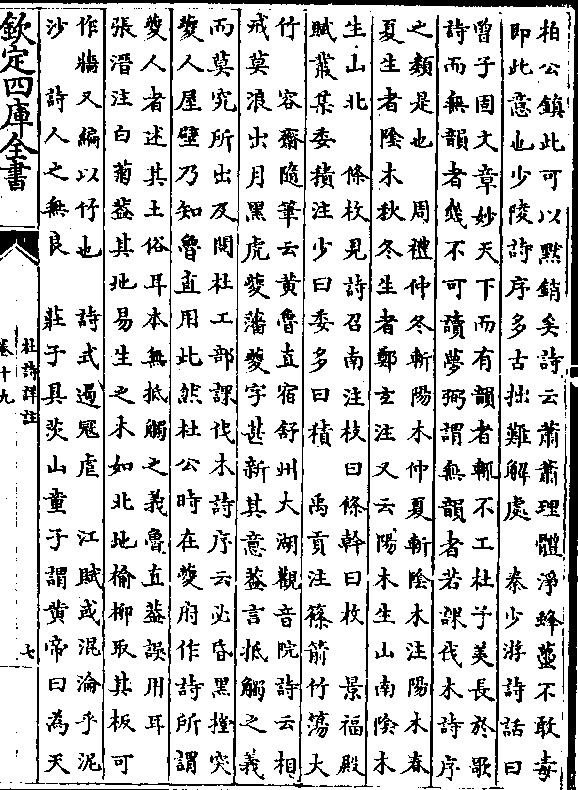 柏公鎮此可以黙銷矣詩云蕭蕭理體淨蜂蠆不敢毒
即此意也少陵詩序多古拙難解處　秦少游詩話曰
曾子固文章妙天下而有韻者輒不工杜子美長於歌
詩而無韻者幾不可讀夢弼謂無韻者若課伐木詩序
之類是也　周禮仲冬斬陽木仲夏斬陰木注陽木春
夏生者陰木秋冬生者鄭玄注又云陽木生山南陰木
生山北　條枚見詩召南注枝曰條幹曰枚　景福殿
賦叢集委積注少曰委多曰積　禹貢注篠箭竹簜大
竹　容齋隨筆云黄魯直宿舒州大湖觀音院詩云相
戒莫浪出月黒虎夔藩夔字甚新其意葢言抵觸之義
而莫究所出及閲杜工部課伐木詩序云必昏黒撞突
夔人屋壁乃知魯直用此然杜公時在夔府作詩所謂
夔人者述其土俗耳本無抵觸之義魯直葢誤用耳
張溍注白菊葢其地易生之木如北地榆柳取其板可
作牆又編以竹也　詩式遏冦虐　江賦或混淪乎泥
沙　詩人之無良　莊子具茨山童子謂黄帝曰為天
欽定四庫全書
杜詩詳註
卷十九
七